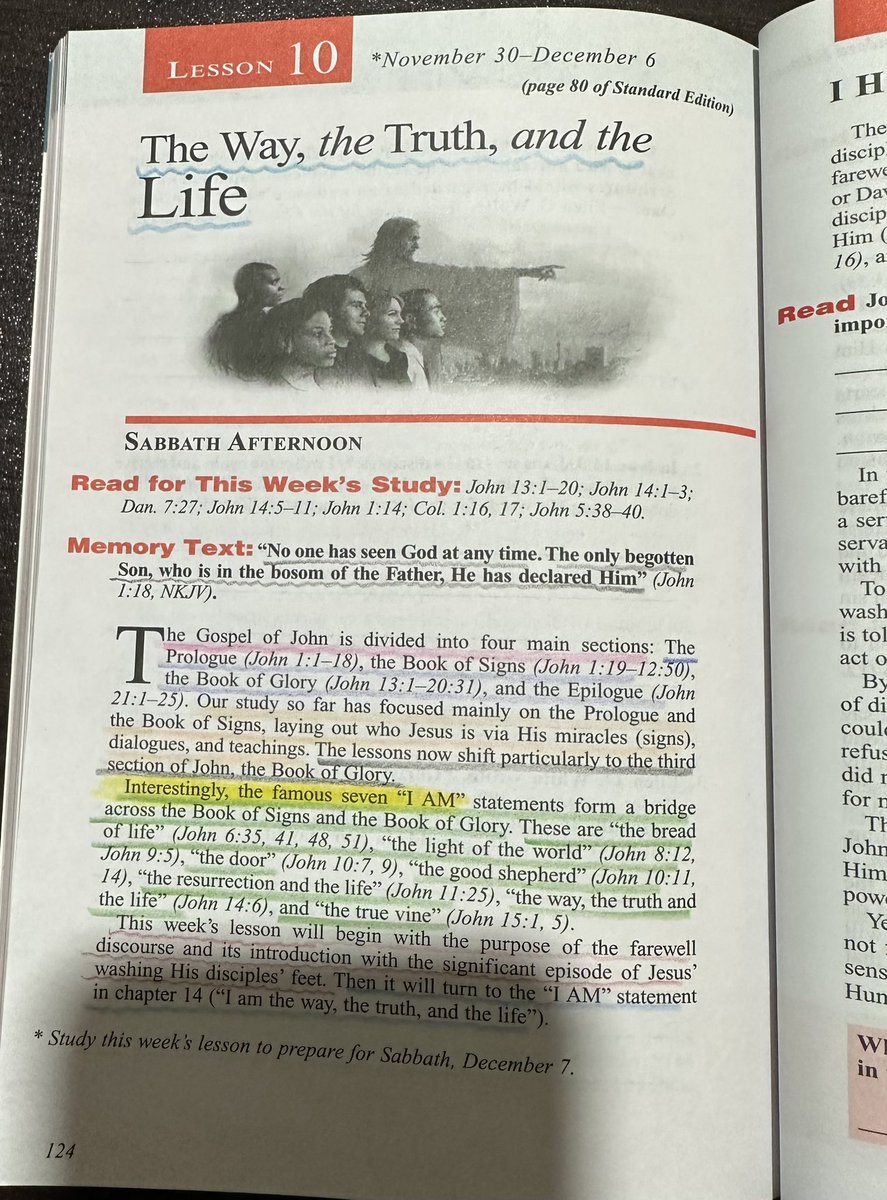 LESSON 10
*November 30–December 6
(page 80 of Standard Edition)
The Way, the Truth, and the
Life
SABBATH AFTERNOON
Read for This Week's Study: John 13:1–20; John 14:1–3;
Dan. 7:27; John 14:5–11; John 1:14; Col. 1:16, 17; John 5:38–40.
Memory Text: “No one has seen God at any time. The only begotten
Son, who is in the bosom of the Father, He has declared Him” (John
1:18, NKJV).
The Gospel of John is divided into four main sections: The
Prologue (John 1:1–18), the Book of Signs (John 1:19–12:50),
the Book of Glory (John 13:1–20:31), and the Epilogue (John
21:1–25). Our study so far has focused mainly on the Prologue and
the Book of Signs, laying out who Jesus is via His miracles (signs),
dialogues, and teachings. The lessons now shift particularly to the third
section of John, the Book of Glory.
Interestingly, the famous seven “I AM” statements form a bridge
across the Book of Signs and the Book of Glory. These are “the bread
of life” (John 6:35, 41, 48, 51), “the light of the world” (John 8:12,
John 9:5), “the door” (John 10:7, 9), “the good shepherd” (John 10:11,
14), “the resurrection and the life” (John 11:25), “the way, the truth and
the life” (John 14:6), and “the true vine” (John 15:1, 5).
This week's lesson will begin with the purpose of the farewell
discourse and its introduction with the significant episode of Jesus'
washing His disciples' feet. Then it will turn to the “I AM” statement
in chapter 14 (“I am the way, the truth, and the life”).
* Study this week's lesson to prepare for Sabbath, December 7.
124
I H
The
discip
farewe
or Da
discip
Him (
16), a
Read Jo
impo
In
baref
a ser
serva
with
To
wash
is tol
act o
By
of di
could
refus
did n
for m
Th
John
Him
powe
Ye
not
sens
Hun
in